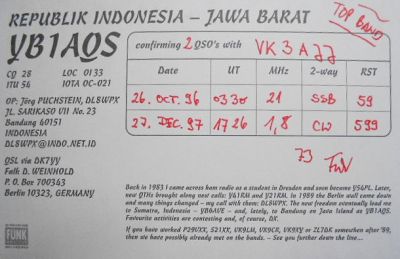 REPUBLIK INDONESIA – JAWA BARAT
TOP BAND
YB1AQS
confirming 2 QSO's with VK3AJJ
CQ 28 LOC OI33
ITU 56 IOTA OC-021
Date UT MHz 2-way RST
26. OCT. 96 0330 21 SSB 59
27. DEC. 97 1726 1,8 CW 599
OP: Jörg PUCHSTEIN, DL8WPX
JL. SARIKASO VII No. 23
Bandung 40151
INDONESIA
DL8WPX@INDO.NET.ID
QSL via DK7YY
Falk D. WEINHOLD
P. O. Box 700343
Berlin 10323, GERMANY
73
Back in 1983 I came across ham radio as a student in Dresden and soon became Y54PL. Later,
new QTHs brought along new calls: Y41RM and Y21RM. In 1989 the Berlin wall came down
and many things changed – my call with them: DL8WPX. The new freedom eventually lead me
to Sumatra, Indonesia – YB6AVE – and, lately, to Bandung on Java Island as YB1AQS.
Favourite activities are contesting and, of course, DX.
If you have worked P29VXX, S21XX, VK9LM, VK9CR, VK9XY or ZL7DK somewhen after '89,
then we have possibly already met on the bands. – See you further down the line...
FUNK